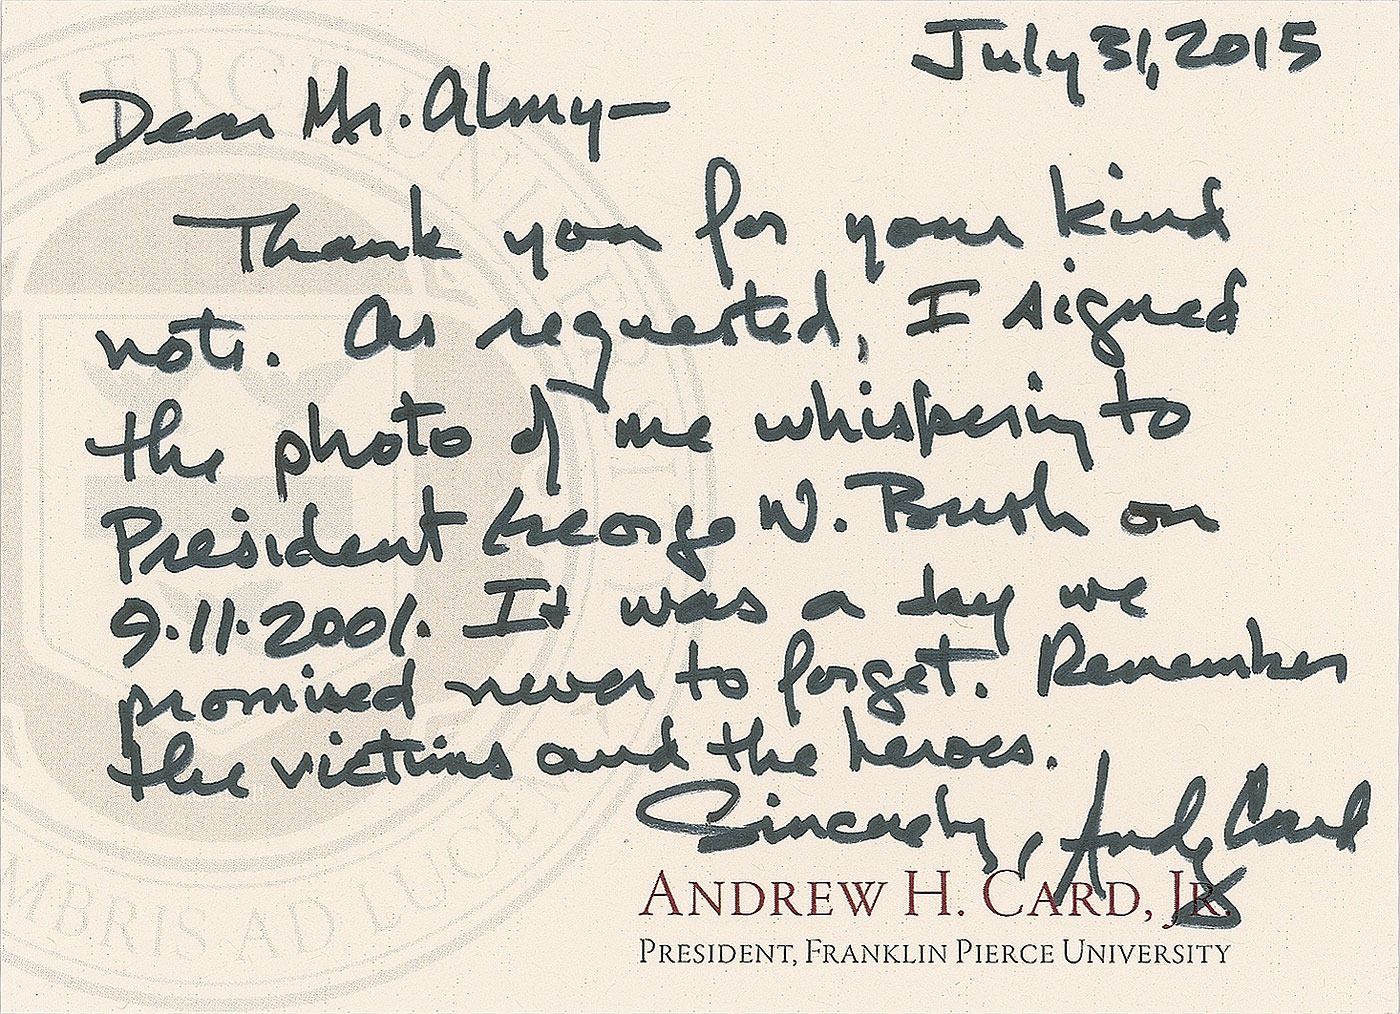 July 31, 2015
Dear Mr. Almy—
Thank you for your kind
note. As requested, I signed
the photo of me whispering to
President George W. Bush on
9.11.2001. It was a day we
promised never to forget. Remember
the victims and the heroes.
Sincerely, Andy Card
ANDREW H. CARD, JR.
PRESIDENT, FRANKLIN PIERCE UNIVERSITY
PIERCE UNIVERSIT
MBRIS AD LUCE